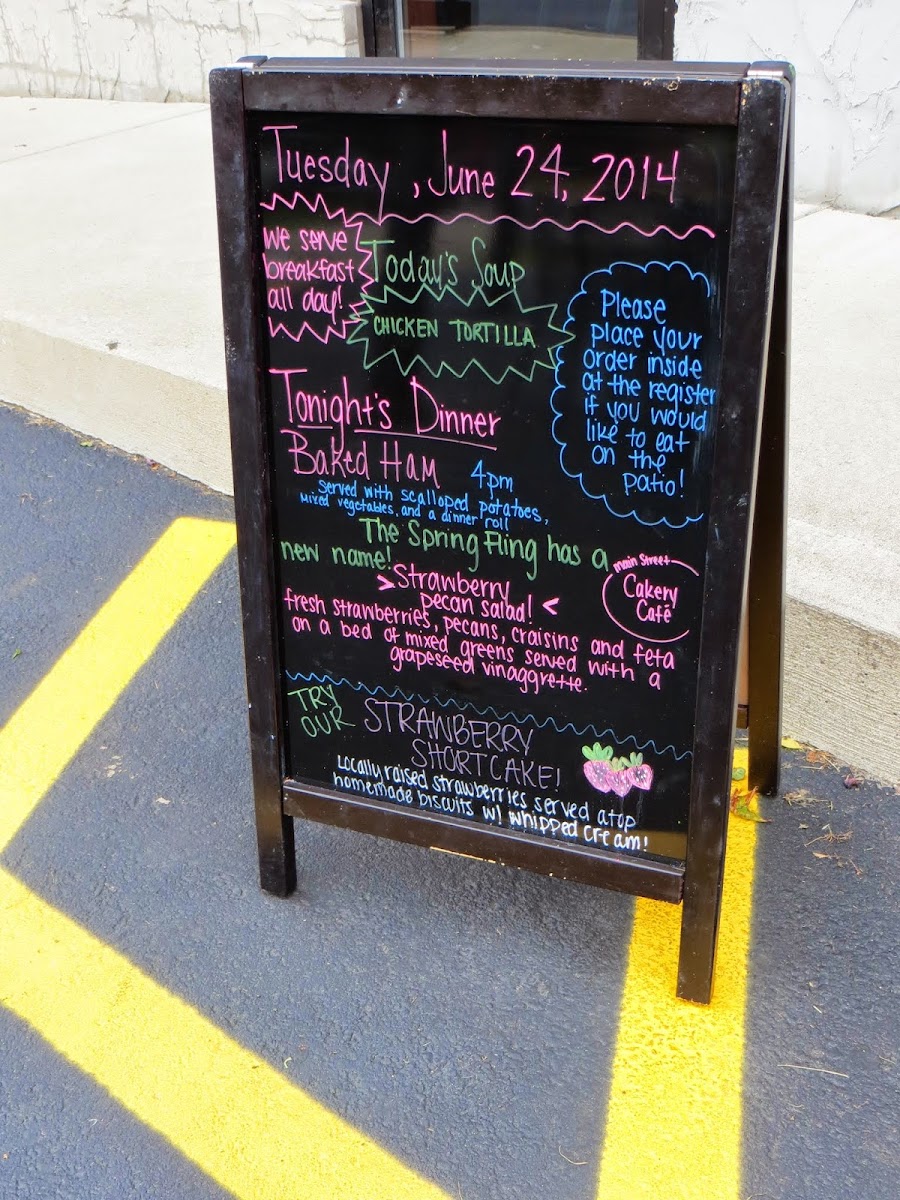 Tuesday, June 24, 2014
We serve
breakfast
all day!
Today's Soup
CHICKEN TORTILLA
Please
place your
order inside
at the register
if you would
like to eat
on the
patio!
Tonight's Dinner
Baked Ham 4pm
Served with scalloped potatoes,
mixed vegetables, and a dinner roll
The Spring Fling has a
new name!
> Strawberry
pecan salad! <
fresh strawberries, pecans, craisins and feta
on a bed of mixed greens served with a
grapeseed vinaggrette.
main Street
Cakery
Café
TRY
OUR
STRAWBERRY
SHORTCAKE!
Locally raised strawberries served atop
homemade biscuits w/ whipped cream!